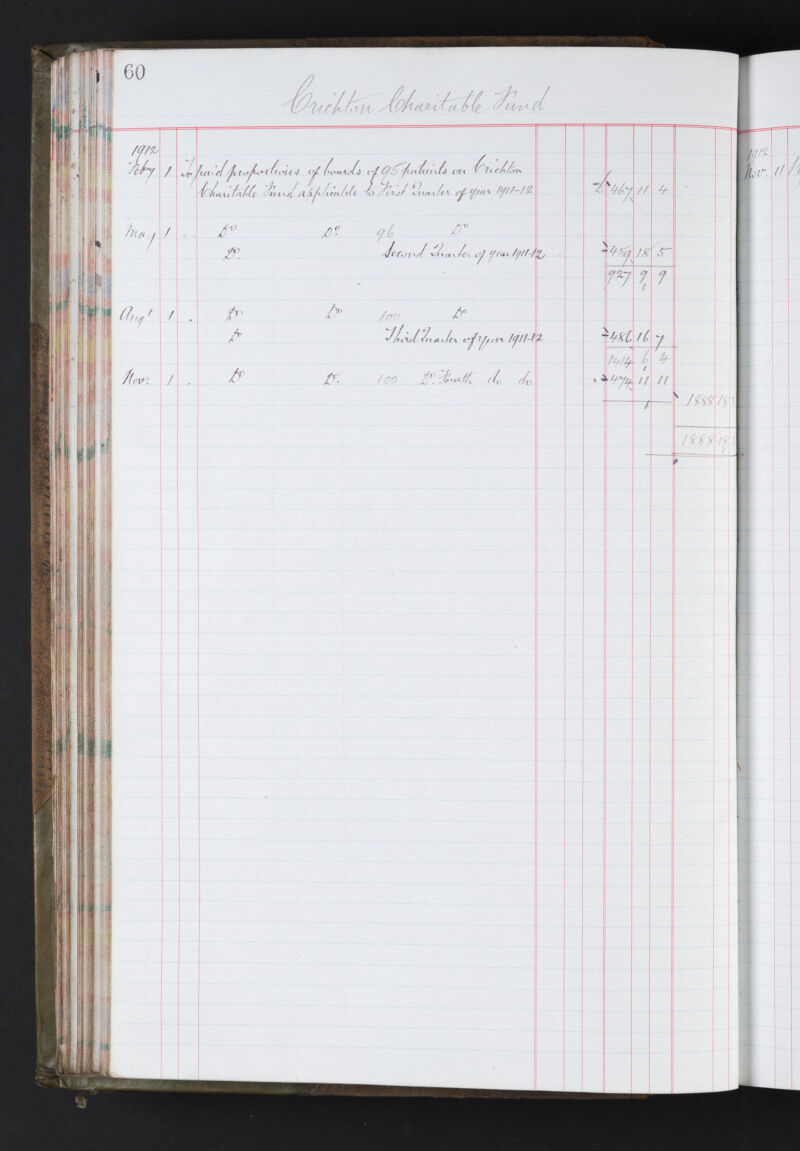 60
Crichton Charitable Fund
1912
Feby 1 To paid proportions of boards of 95 patients on Crichton
Charitable Fund applicable to First Quarter of year 1911-12 £ 467 11 4
May 1 " Do Do 96 Do
Do Second Quarter of year 1911-12 " 459 18 5
927 9 9
Augt 1 " Do Do 100 Do
Do Third Quarter of year 1911-12 " 486 16 7
1414 6 4
Nov. 1 " Do Do 100 Do Fourth do do " 474 11 11
1888 18 3
1888 18 3
1912
Nov. 11